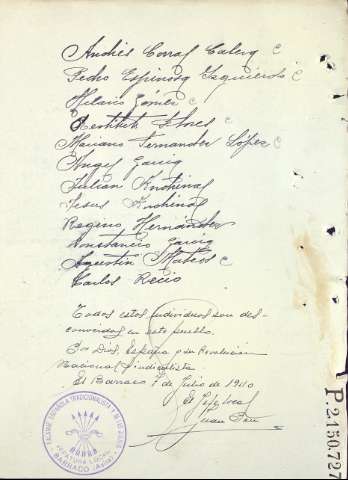 Andrés Corral Calero C
Pedro Espinosa Izquierdo C
Hilario Gómez C
Restituto Flores C
Mariano Fernandez López C
Angel García
Julian
Jesus
Regino Hernández
Constancio García
Agustin Mateos C
Carlos Recio
Todos estos individuos son des-
conocidos en este pueblo.
Por Dios, España y su Revolución
Nacional Sindicalista
El Barraco 7 de Julio de 1940
El Jefe Local
Juan
FALANGE ESPAÑOLA TRADICIONALISTA Y DE LAS JONS
JEFATURA LOCAL
BARRACO (Avila)
P2.150.727